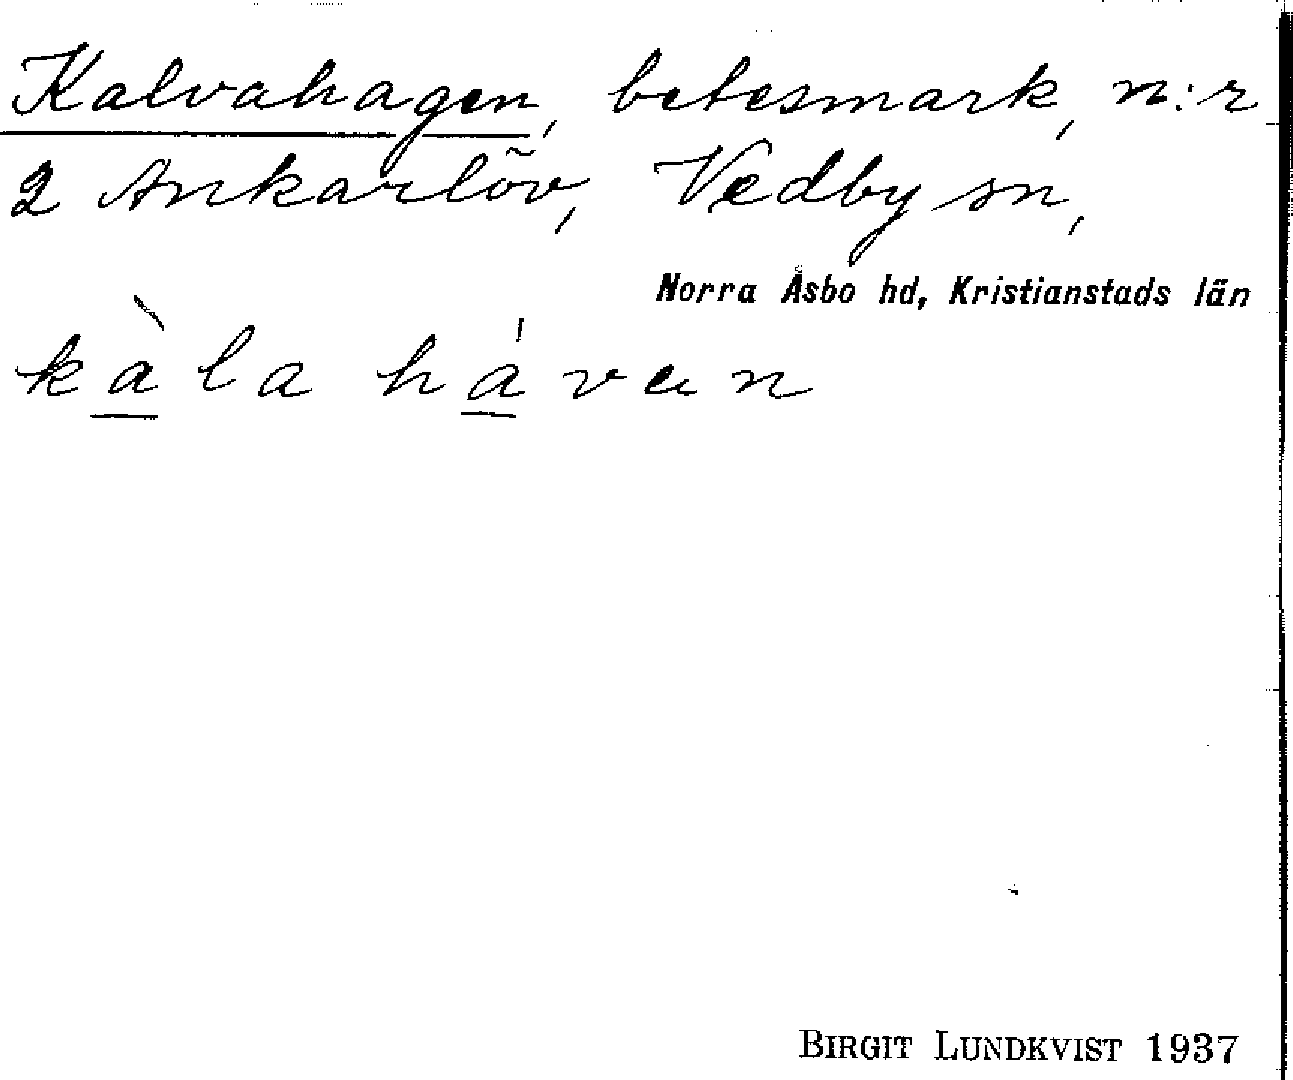 Kalvahagen, betesmark, n:r
2 Ankarlöv, Vedby sn,
Norra Åsbo hd, Kristianstads län
kàla hávan
BIRGIT LUNDKVIST 1937